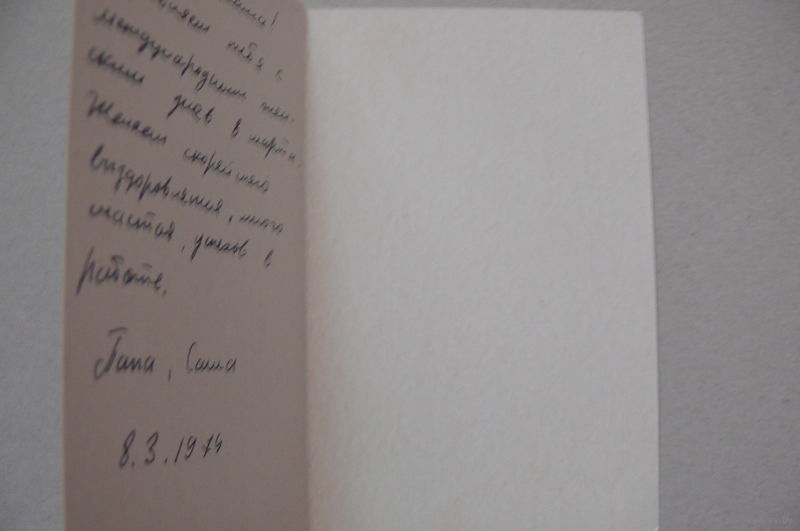 тебя с
международным жен-
ским днем 8 марта.
Желаем скорейшего
выздоровления, много
счастья, успехов в
работе.
Папа, Саша
8.3.1974